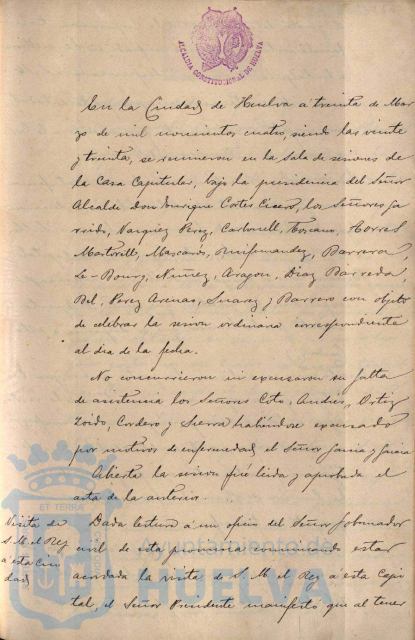 ALCALDIA CONSTITUCIONAL DE HUELVA
En la Ciudad de Huelva á treinta de Mar-
zo de mil novecientos cuatro, siendo las veinte
y treinta, se reunieron en la Sala de sesiones de
la Casa Capitular, bajo la presidencia del Señor
Alcalde Don Enrique Cortés Cisero, los Señores Ga-
rrido, Vazquez Perez, Carbonell, Toscano, Torres
Martorell, Mascarós, Ruifernandez, Barrera,
Le-Bourg, Nuñez, Aragon, Diaz Barreda,
Bel, Perez Arenas, Suarez y Barrero con objeto
de celebrar la sesion ordinaria correspondiente
al dia de la fecha.
No concurrieron ni excusaron su falta
de asistencia los Señores Coto, Andres, Ortiz
Zoido, Cordero y Sierra habiéndose excusado
por motivos de enfermedad, el Señor Garcia y Garcia
Abierta la sesion fué leida y aprobada el
acta de la anterior.
Visita de
S. M. el Rey
á esta Ciu-
dad
Dada lectura á un oficio del Señor Gobernador
civil de esta provincia comunicando estar
acordada la visita de S. M. el Rey á esta Capi-
tal, el Señor Presidente manifestó que al tener
ET TERRA
Ayuntamiento de
HUELVA